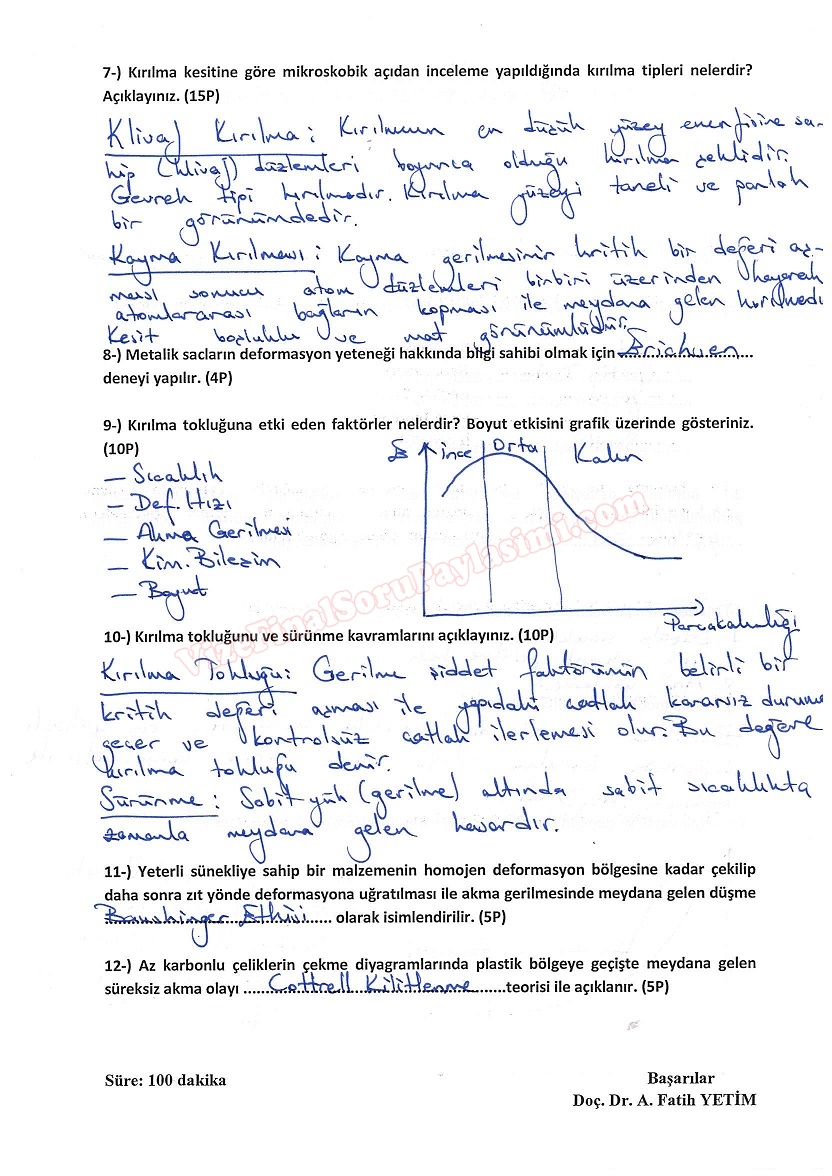 7-) Kırılma kesitine göre mikroskobik açıdan inceleme yapıldığında kırılma tipleri nelerdir?
Açıklayınız. (15P)
Klivaj Kırılma : Kırılmanın en düşük yüzey enerjisine sa-
hip (klivaj) düzlemleri boyunca olduğu kırılma şeklidir.
Gevrek tipi kırılmadır. Kırılma yüzeyi taneli ve parlak
bir görünümdedir.
Kayma Kırılması : Kayma gerilmesinin kritik bir değeri aş-
ması sonucu atom düzlemleri birbiri üzerinden kayarak
atomlararası bağların kopması ile meydana gelen kırılmadı
Kesit boşluklu ve mat görünümlüdür.
8-) Metalik sacların deformasyon yeteneği hakkında bilgi sahibi olmak için Erichsen
deneyi yapılır. (4P)
9-) Kırılma tokluğuna etki eden faktörler nelerdir? Boyut etkisini grafik üzerinde gösteriniz.
(10P)
ince Orta Kalın
— Sıcaklık
— Def. Hızı
— Akma Gerilmesi
— Kim. Bileşim
— Boyut
Parcakalınlığı
VizeFinalSoruPaylasimi.com
10-) Kırılma tokluğunu ve sürünme kavramlarını açıklayınız. (10P)
Kırılma Tokluğu : Gerilme şiddet faktörünün belirli bir
kritik değeri aşması ile yapıdaki çatlak kararsız duruma
geçer ve kontrolsüz çatlak ilerlemesi olur. Bu değere
kırılma tokluğu denir.
Sürünme : Sabit yük (gerilme) altında sabit sıcaklıkta
zamanla meydana gelen hasardır.
11-) Yeterli sünekliye sahip bir malzemenin homojen deformasyon bölgesine kadar çekilip
daha sonra zıt yönde deformasyona uğratılması ile akma gerilmesinde meydana gelen düşme
Baushinger Etkisi...... olarak isimlendirilir. (5P)
12-) Az karbonlu çeliklerin çekme diyagramlarında plastik bölgeye geçişte meydana gelen
süreksiz akma olayı ......Cottrell Kilitlenme.......teorisi ile açıklanır. (5P)
Süre: 100 dakika
Başarılar
Doç. Dr. A. Fatih YETİM